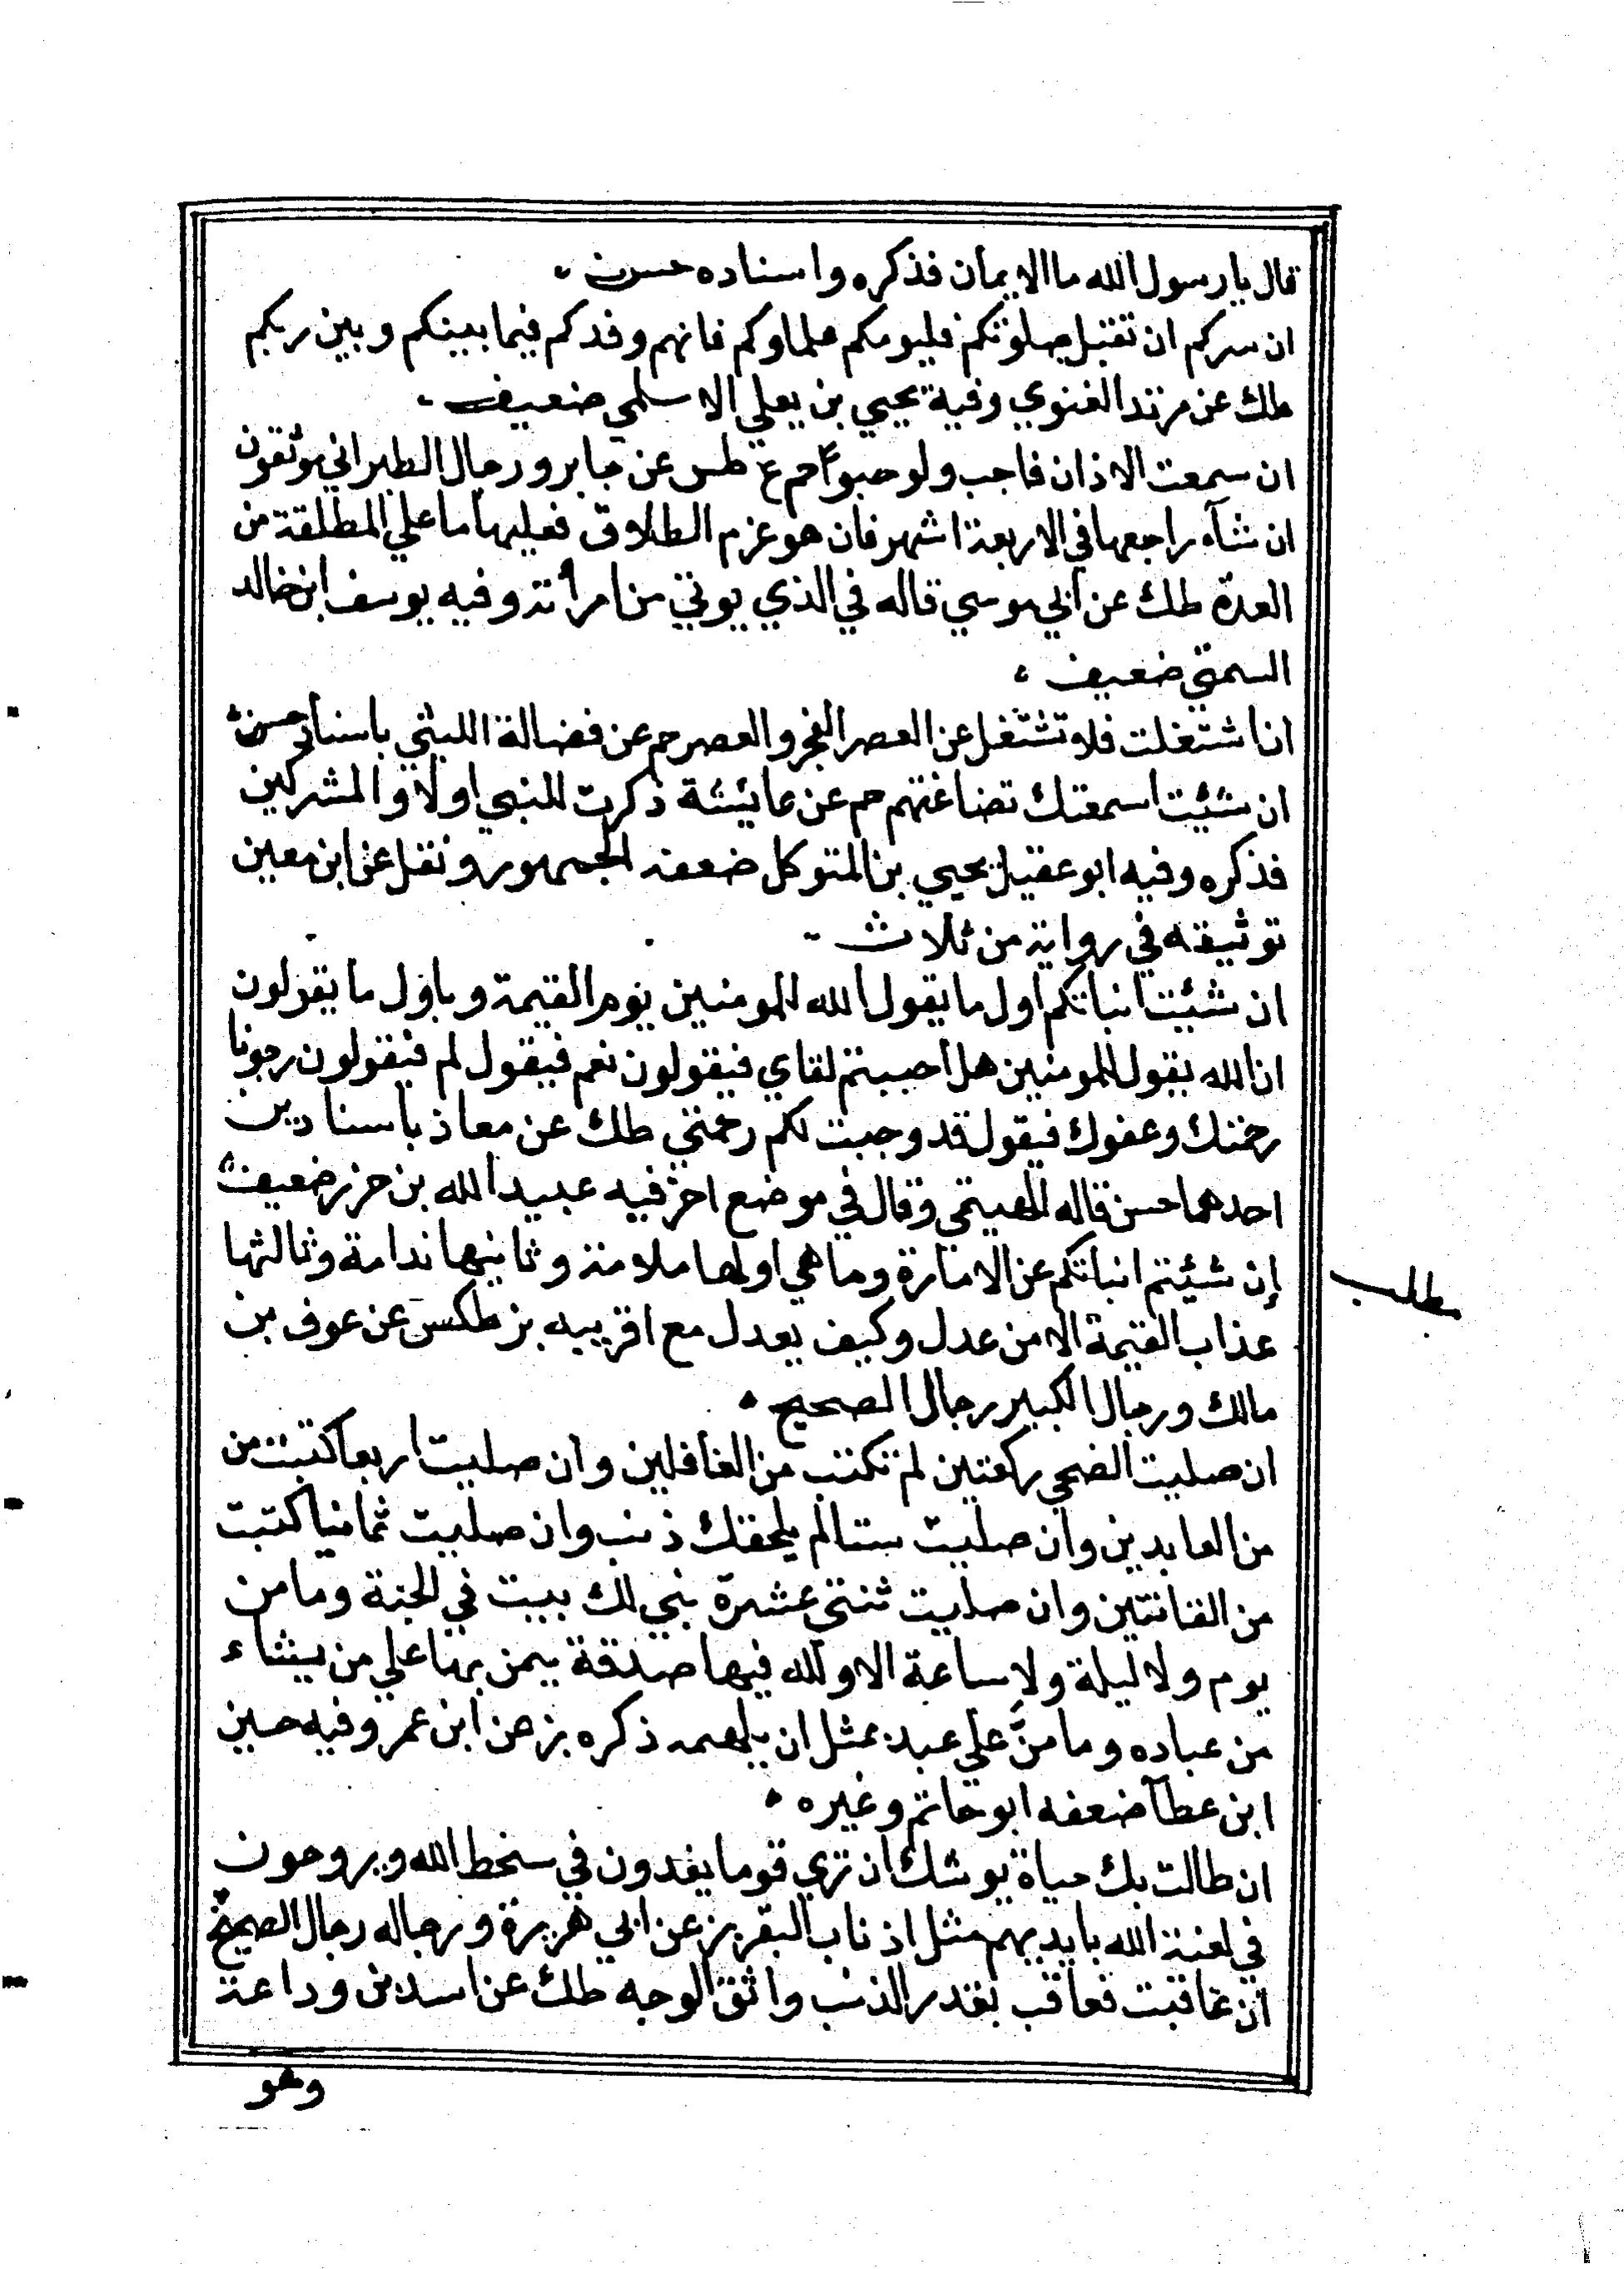 قال يا رسول الله ما الايمان فذكره واسناده حسن
ان سركم ان تقبل صلوتكم فليومكم علماوكم فانهم وفدكم فيما بينكم وبين ربكم
طك عن مرتد الغنوي وفية يحيي بن يعلي الاسلمي ضعيف
ان سمعت الاذان فاجب ولو حبوا حم ع طس عن جابر ورجال الطبراني موثقون
ان شآء راجعها في الاربعة اشهر فان هو عزم الطلاق فعليها ما علي المطلقة من
العدة طك عن ابي موسي قاله في الذي يوتي من امرأته وفيه يوسف ابن خالد
السمتي ضعيف
ان اشتغلت فلا تشتغل عن العصر الفجر والعصر حم عن فضالة الليثي باسناد حسن
ان شئيت اسمعتك تضاغتهم حم عن عايئشة ذكرت للنبي اولاد المشركين
فذكره وفيه ابو عقيل يحيي بن المتوكل ضعفه الجمهور ونقل عن ابن معين
توثيقه في رواية من ثلاث
ان شئيت انباتكم اول ما يقول الله للمومنين يوم القيمة وباول ما يقولون
ان الله يقول للمومنين هل احببتم لقاي فيقولون نعم فيقول لم فيقولون رجونا
رحمتك وعفوك فيقول قد وجبت لكم رحمتي طك عن معاذ باسنادين
احدهما حسن قاله الهيتمي وقال في موضع اخر فيه عبيد الله بن حزر ضعيف
إن شئيتم انباتكم عن الامارة وما هي اولها ملامة وثانيها ندامة وثالثها
مطلب
عذاب القيمة الا من عدل وكيف يعدل مع اقربيه بز طكس عن عوف بن
مالك ورجال الكبير رجال الصحيح
ان صليت الضحي ركعتين لم تكتب من الغافلين وان صليت اربعا كتبت من
من العابدين وان صليت ستا لم يلحقك ذنب وان صليت ثمانيا كتبت
من القانتين وان صليت ثنتي عشرة بني لك بيت في الجنة وما من
يوم ولا ليلة ولا ساعة الا ولله فيها صدقة يمن بها علي من يشاء
من عباده وما منّ علي عبد بمثل ان يلهمه ذكره بز عن ابن عمر وفيه حسين
ابن عطآ ضعفه ابو حاتم وغيره
ان طالت بك حياة يوشك ان تري قوما يغدون في سخط الله ويروحون
في لعنة الله بايديهم مثل اذناب البقر بز عن ابي هريرة ورجاله رجال الصحيح
ان عاقبت فعاقب بقدر الذنب واتق الوجه طك عن اسد بن وداعة
وهو